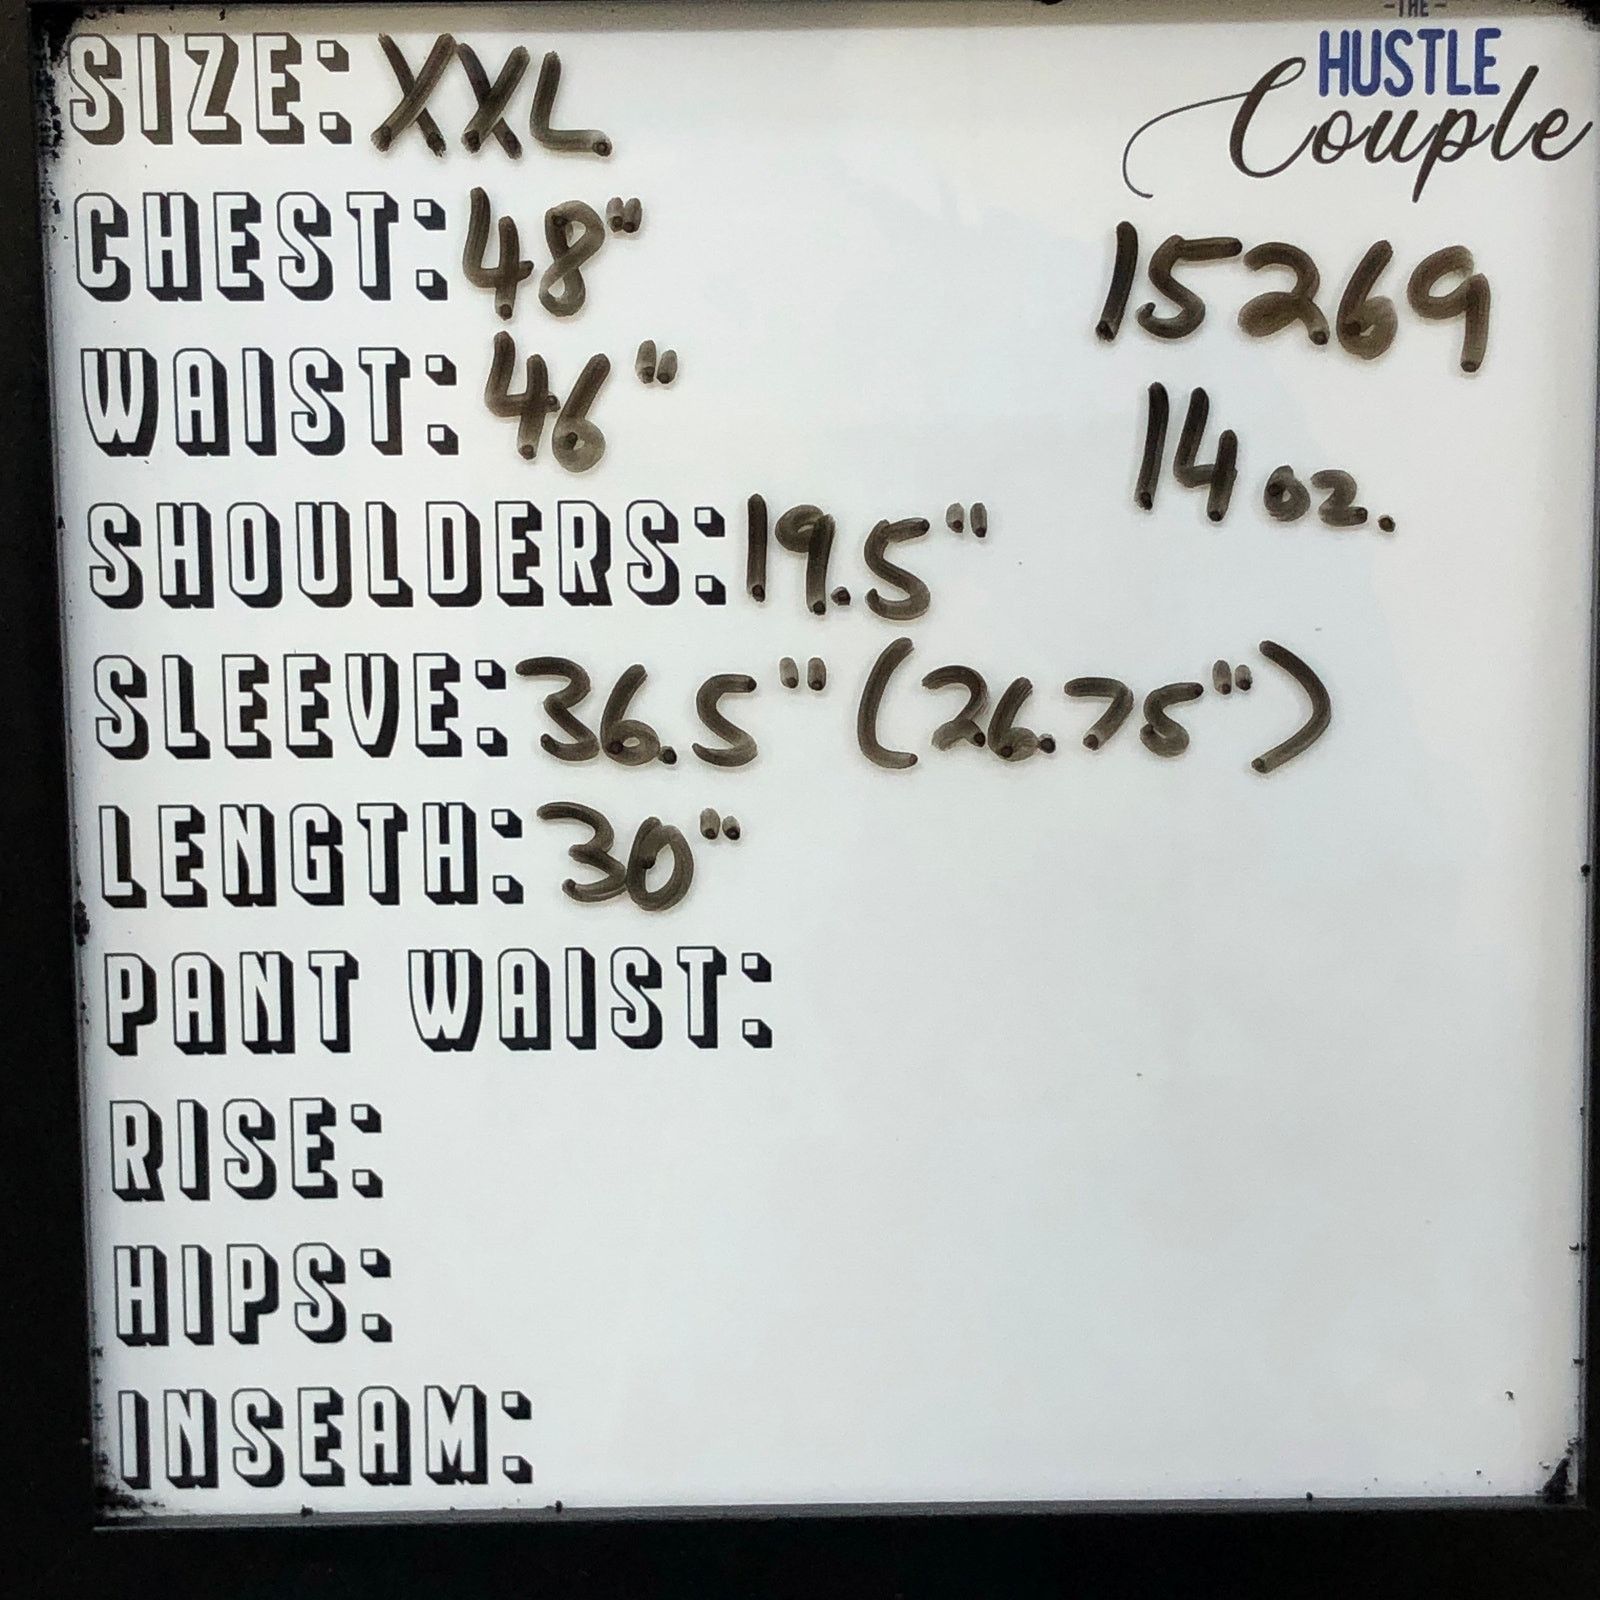 -THE-
HUSTLE
Couple
SIZE: XXL
CHEST: 48"
15269
WAIST: 46"
14 oz.
SHOULDERS: 19.5"
SLEEVE: 36.5" (26.75")
LENGTH: 30"
PANT WAIST:
RISE:
HIPS:
INSEAM: